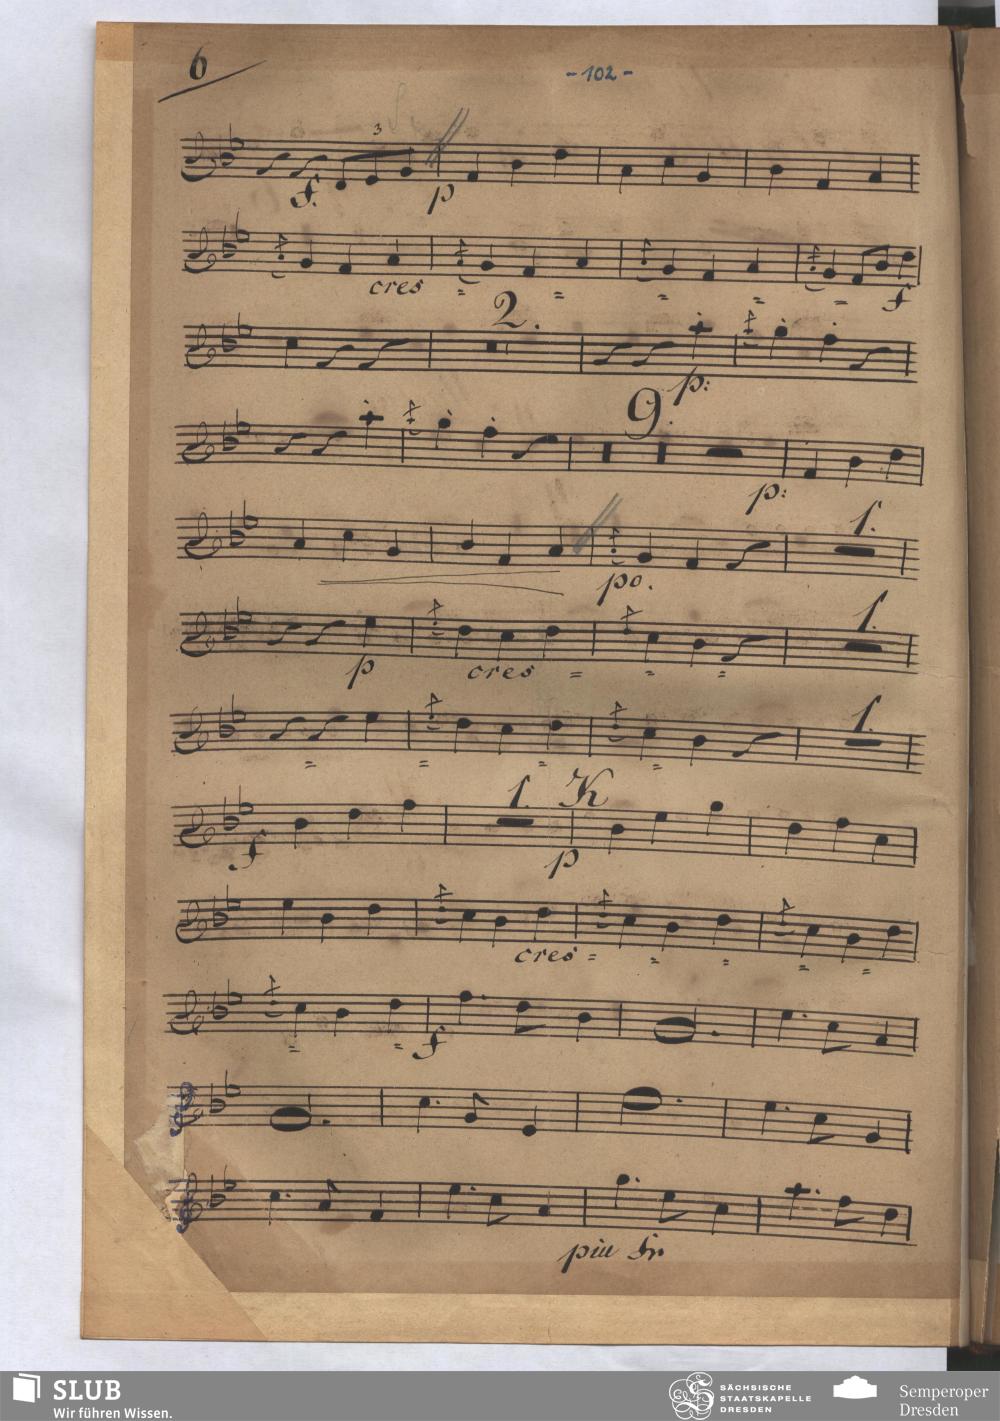 6
- 102 -
3
f. p
cres = = = = = f
2.
p:
9.
p:
1.
po.
1.
p cres = = =
1.
= = = =
1. K
f p
cres = = = = =
= = f
piu for
SLUB
Wir führen Wissen.
SÄCHSISCHE
STAATSKAPELLE
DRESDEN
Semperoper
Dresden